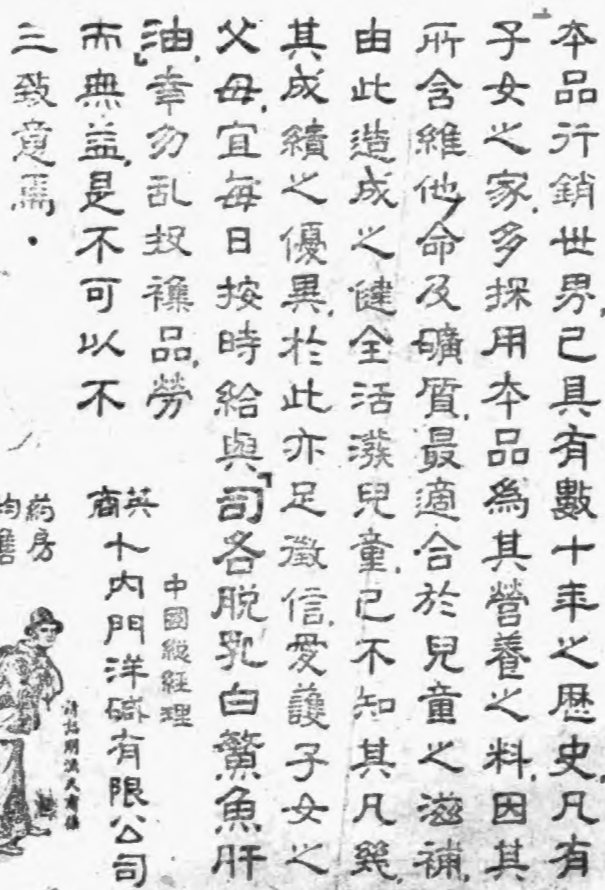 本品行銷世界,已具有數十年之歷史,凡有
子女之家,多採用本品為其營養之料,因其
所含維他命及礦質,最適合於兒童之滋補,
由此造成之健全活潑兒童,已不知其凡幾,
其成績之優異,於此亦足徵信,愛護子女之
父母,宜每日按時給與「司各脫乳白鰵魚肝
油」,幸勿乱投襍品,勞
而無益,是不可以不
三致意焉.
中國總經理
英商
卜內門洋碱有限公司
葯房
均售
請認明漁夫商標